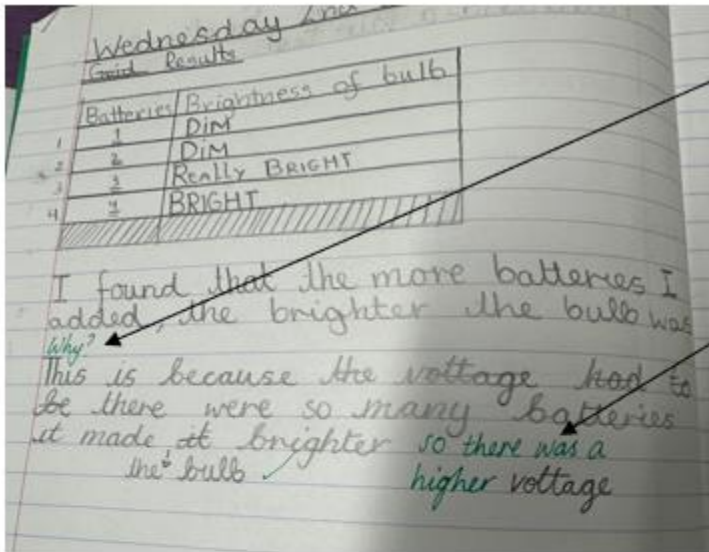 Wednesday
Grid Results
Batteries Brightness of bulb
1 1 DIM
2 2 DIM
3 3 Really BRIGHT
4 BRIGHT
I found that the more batteries I
added, the brighter the bulb was
Why?
This is because the voltage had to
be there were so many batteries
it made it brighter so there was a
the bulb higher voltage